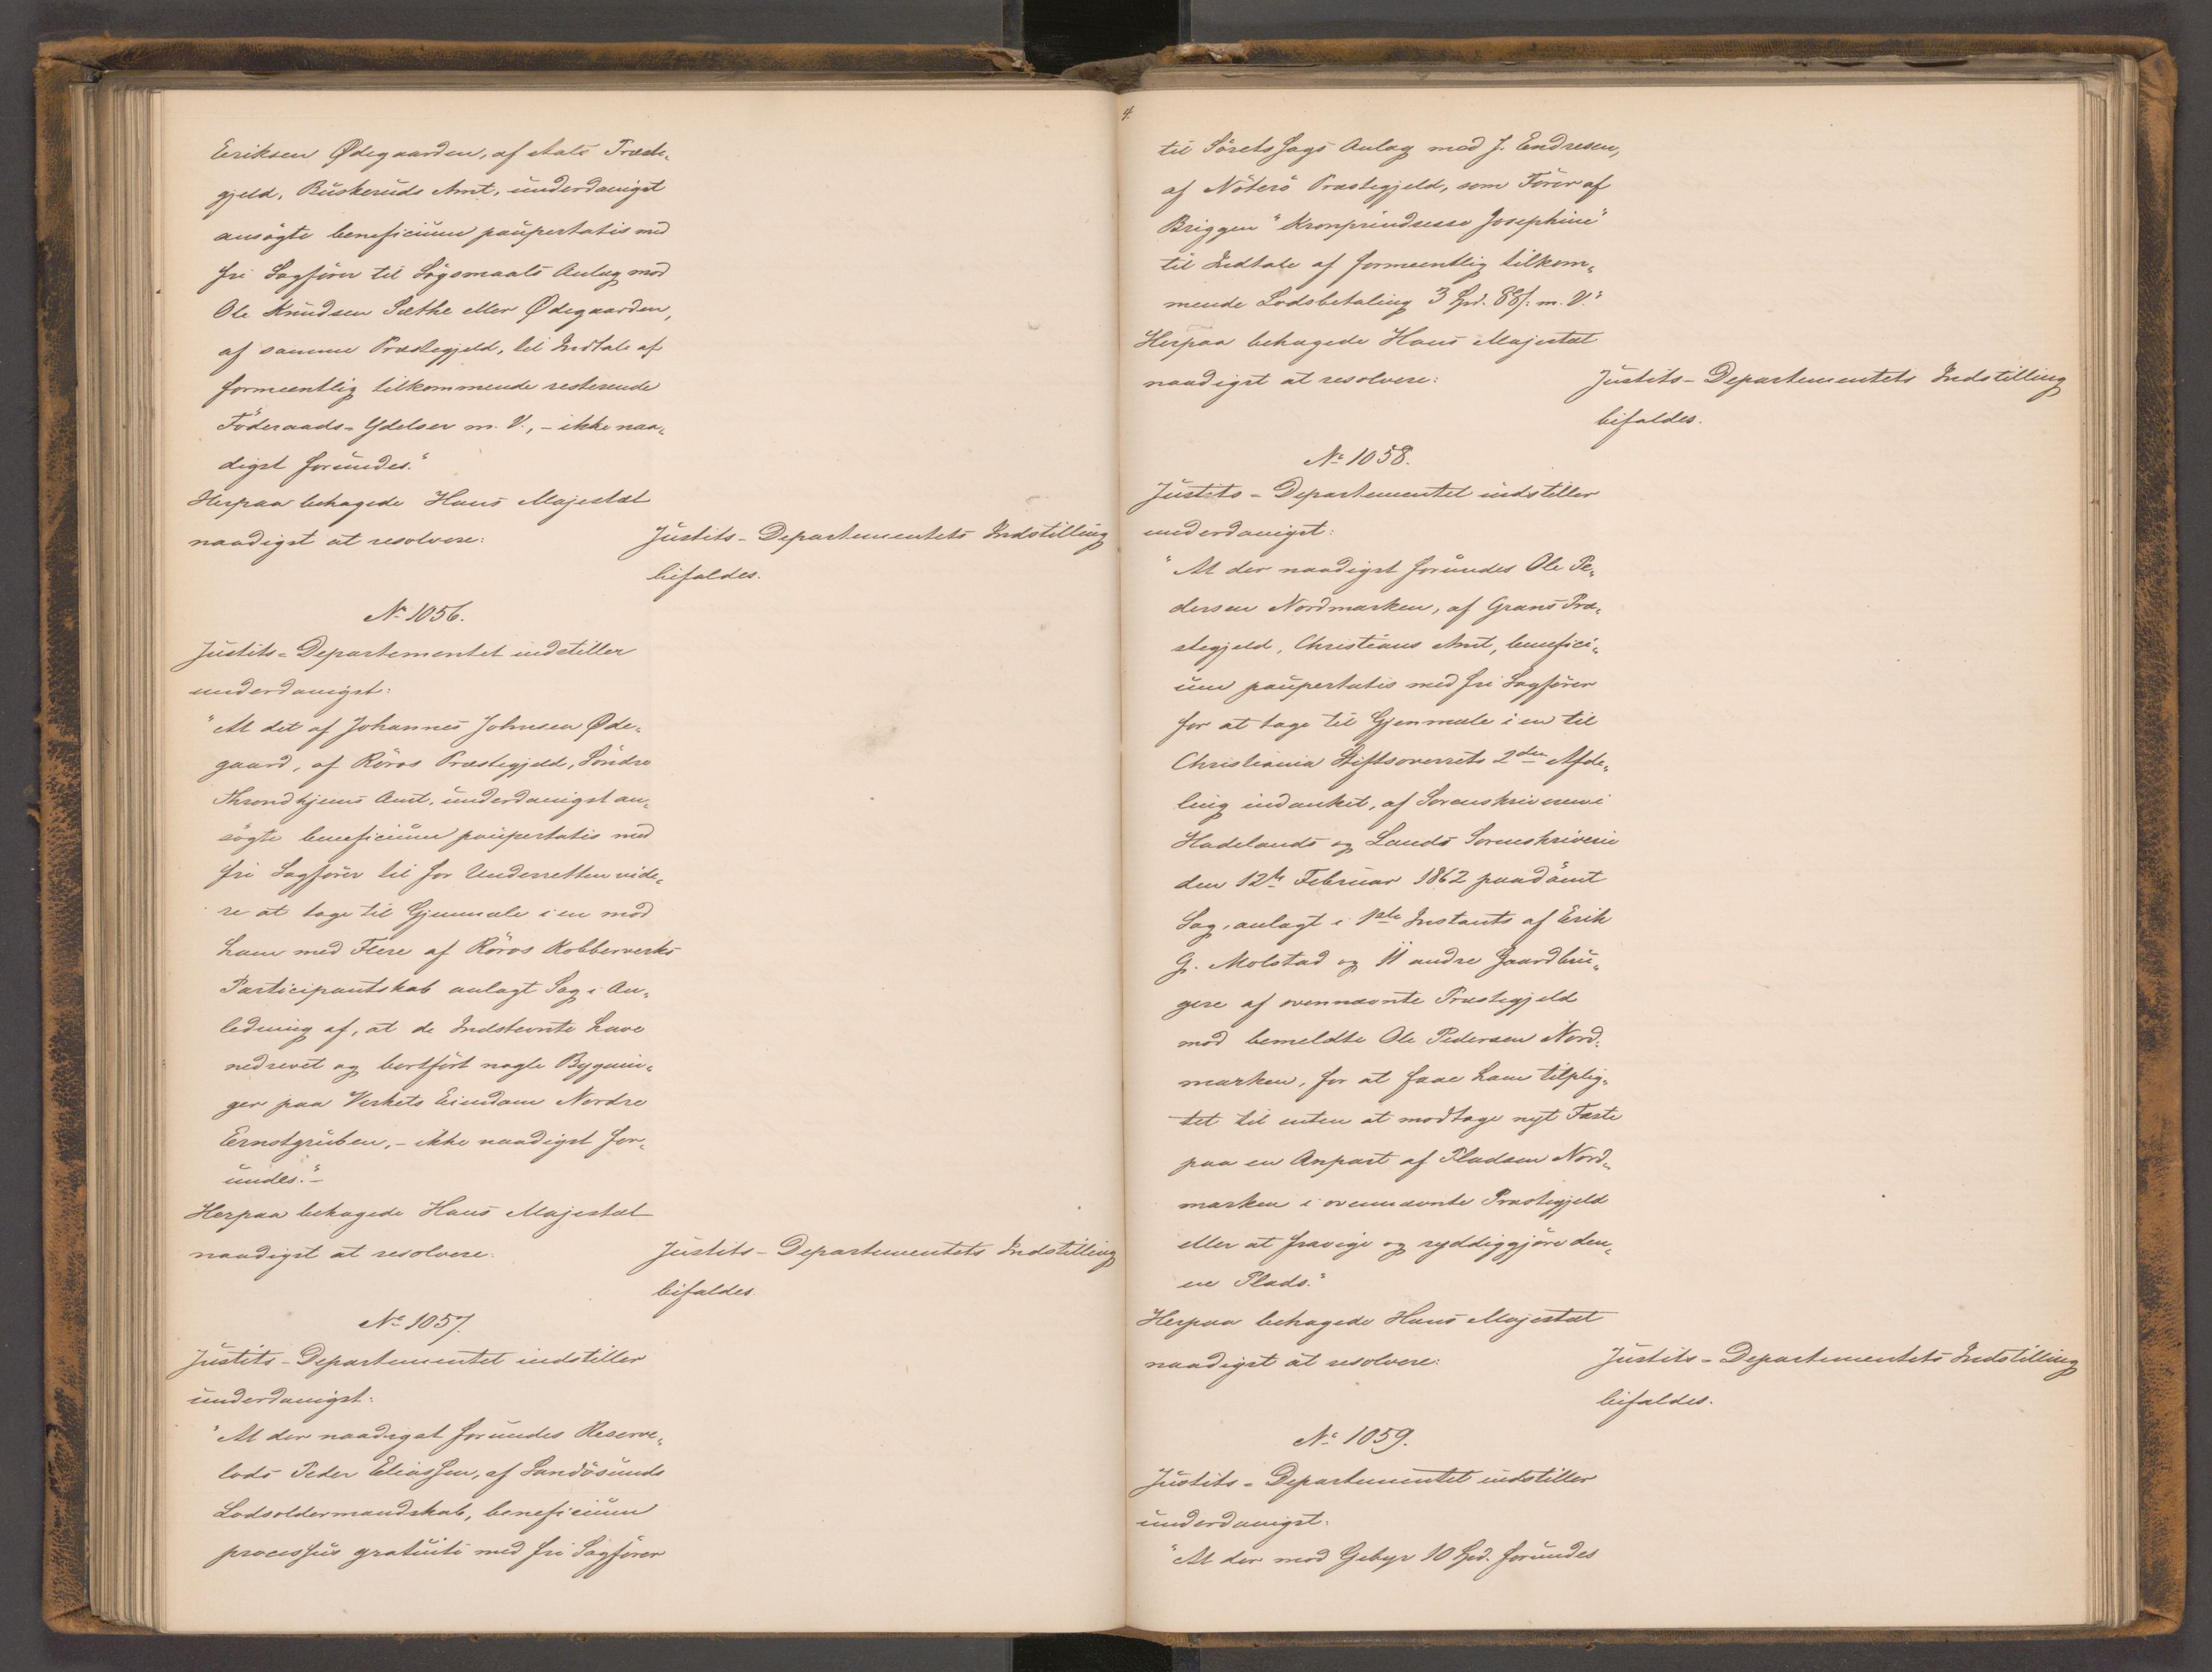 Eriksen Ødegaarden, af Aals Præste-
gjeld, Buskeruds Amt, underdanigst
ansøgte beneficium paupertatis med
fri Sagfører til Søgsmaals Anlæg mod
Ole Knudsen Sæthe eller Ødegaarden,
af samme Præstegjeld, til Indtale af
formeentlig tilkommende resterende
Föderaads-Ydelser m. V., - ikke naa-
digst forundes."
Herpaa behagede Hans Majestæt
naadigst at resolvere:
Justits-Departementets Indstilling
bifaldes.
No 1056.
Justits-Departementet indstiller
underdanigst:
"At det af Johannes Johnsen Øde-
gaard, af Röros Præstegjeld, Söndre
Throndhjems Amt, underdanigst an-
søgte beneficium paupertatis med
fri Sagförer til for Underretten vide-
re at tage til Gjenmæle i en mod
ham med Flere af Röros Kobberverks
Participantskab anlagt Sag i An-
ledning af, at de Indstevnte have
nedrevet og bortfört nogle Bygnin-
ger paa Verkets Eiendom Nordre
Ernstgruben, - ikke naadigst for-
undes."-
Herpaa behagede Hans Majestæt
naadigst at resolvere:
Justits-Departementets Indstilling
bifaldes.
No 1057.
Justits-Departementet indstiller
underdanigst:
"At der naadigst forundes Reserve-
lods Peder Eliassen, af Sandösunds
Lodsoldermandskab, beneficium
processus gratuiti med fri Sagförer
4.
til Sörets Sags Anlæg mod J. Endresen,
af Nöterö Præstegjeld, som Förer af
Briggen "Kronprindsesse Josephine"
til Indtale af formeentlig tilkom-
mende Lodsbetaling 3 Spd. 88 s. m. V."
Herpaa behagede Hans Majestæt
naadigst at resolvere:
Justits-Departementets Indstilling
bifaldes.
No 1058.
Justits-Departementet indstiller
underdanigst:
"At der naadigst forundes Ole Pe-
dersen Nordmarken, af Grans Præ-
stegjeld, Christians Amt, benefici-
um paupertatis med fri Sagförer
for at tage til Gjenmæle i en til
Christiania Stiftsoverrets 2den Afde-
ling indanket, af Sorenskriveren i
Hadelands og Lands Sorenskriverie
den 12te Februar 1862 paadömt
Sag, anlagt i 1ste Instants af Erik
G. Molstad og 11 andre Gaardbru-
gere af ovennævnte Præstegjeld
mod bemeldte Ole Pedersen Nord-
marken, for at faae ham tilplig-
tet til enten at modtage nyt Fæste
paa en Anpart af Pladsen Nord-
marken i ovennævnte Præstegjeld
eller at fravige og ryddiggjöre den-
ne Plads."
Herpaa behagede Hans Majestæt
naadigst at resolvere:
Justits-Departementets Indstilling
bifaldes.
No 1059.
Justits-Departementet indstiller
underdanigst:
"At der mod Gebyr 10 Spd. forundes